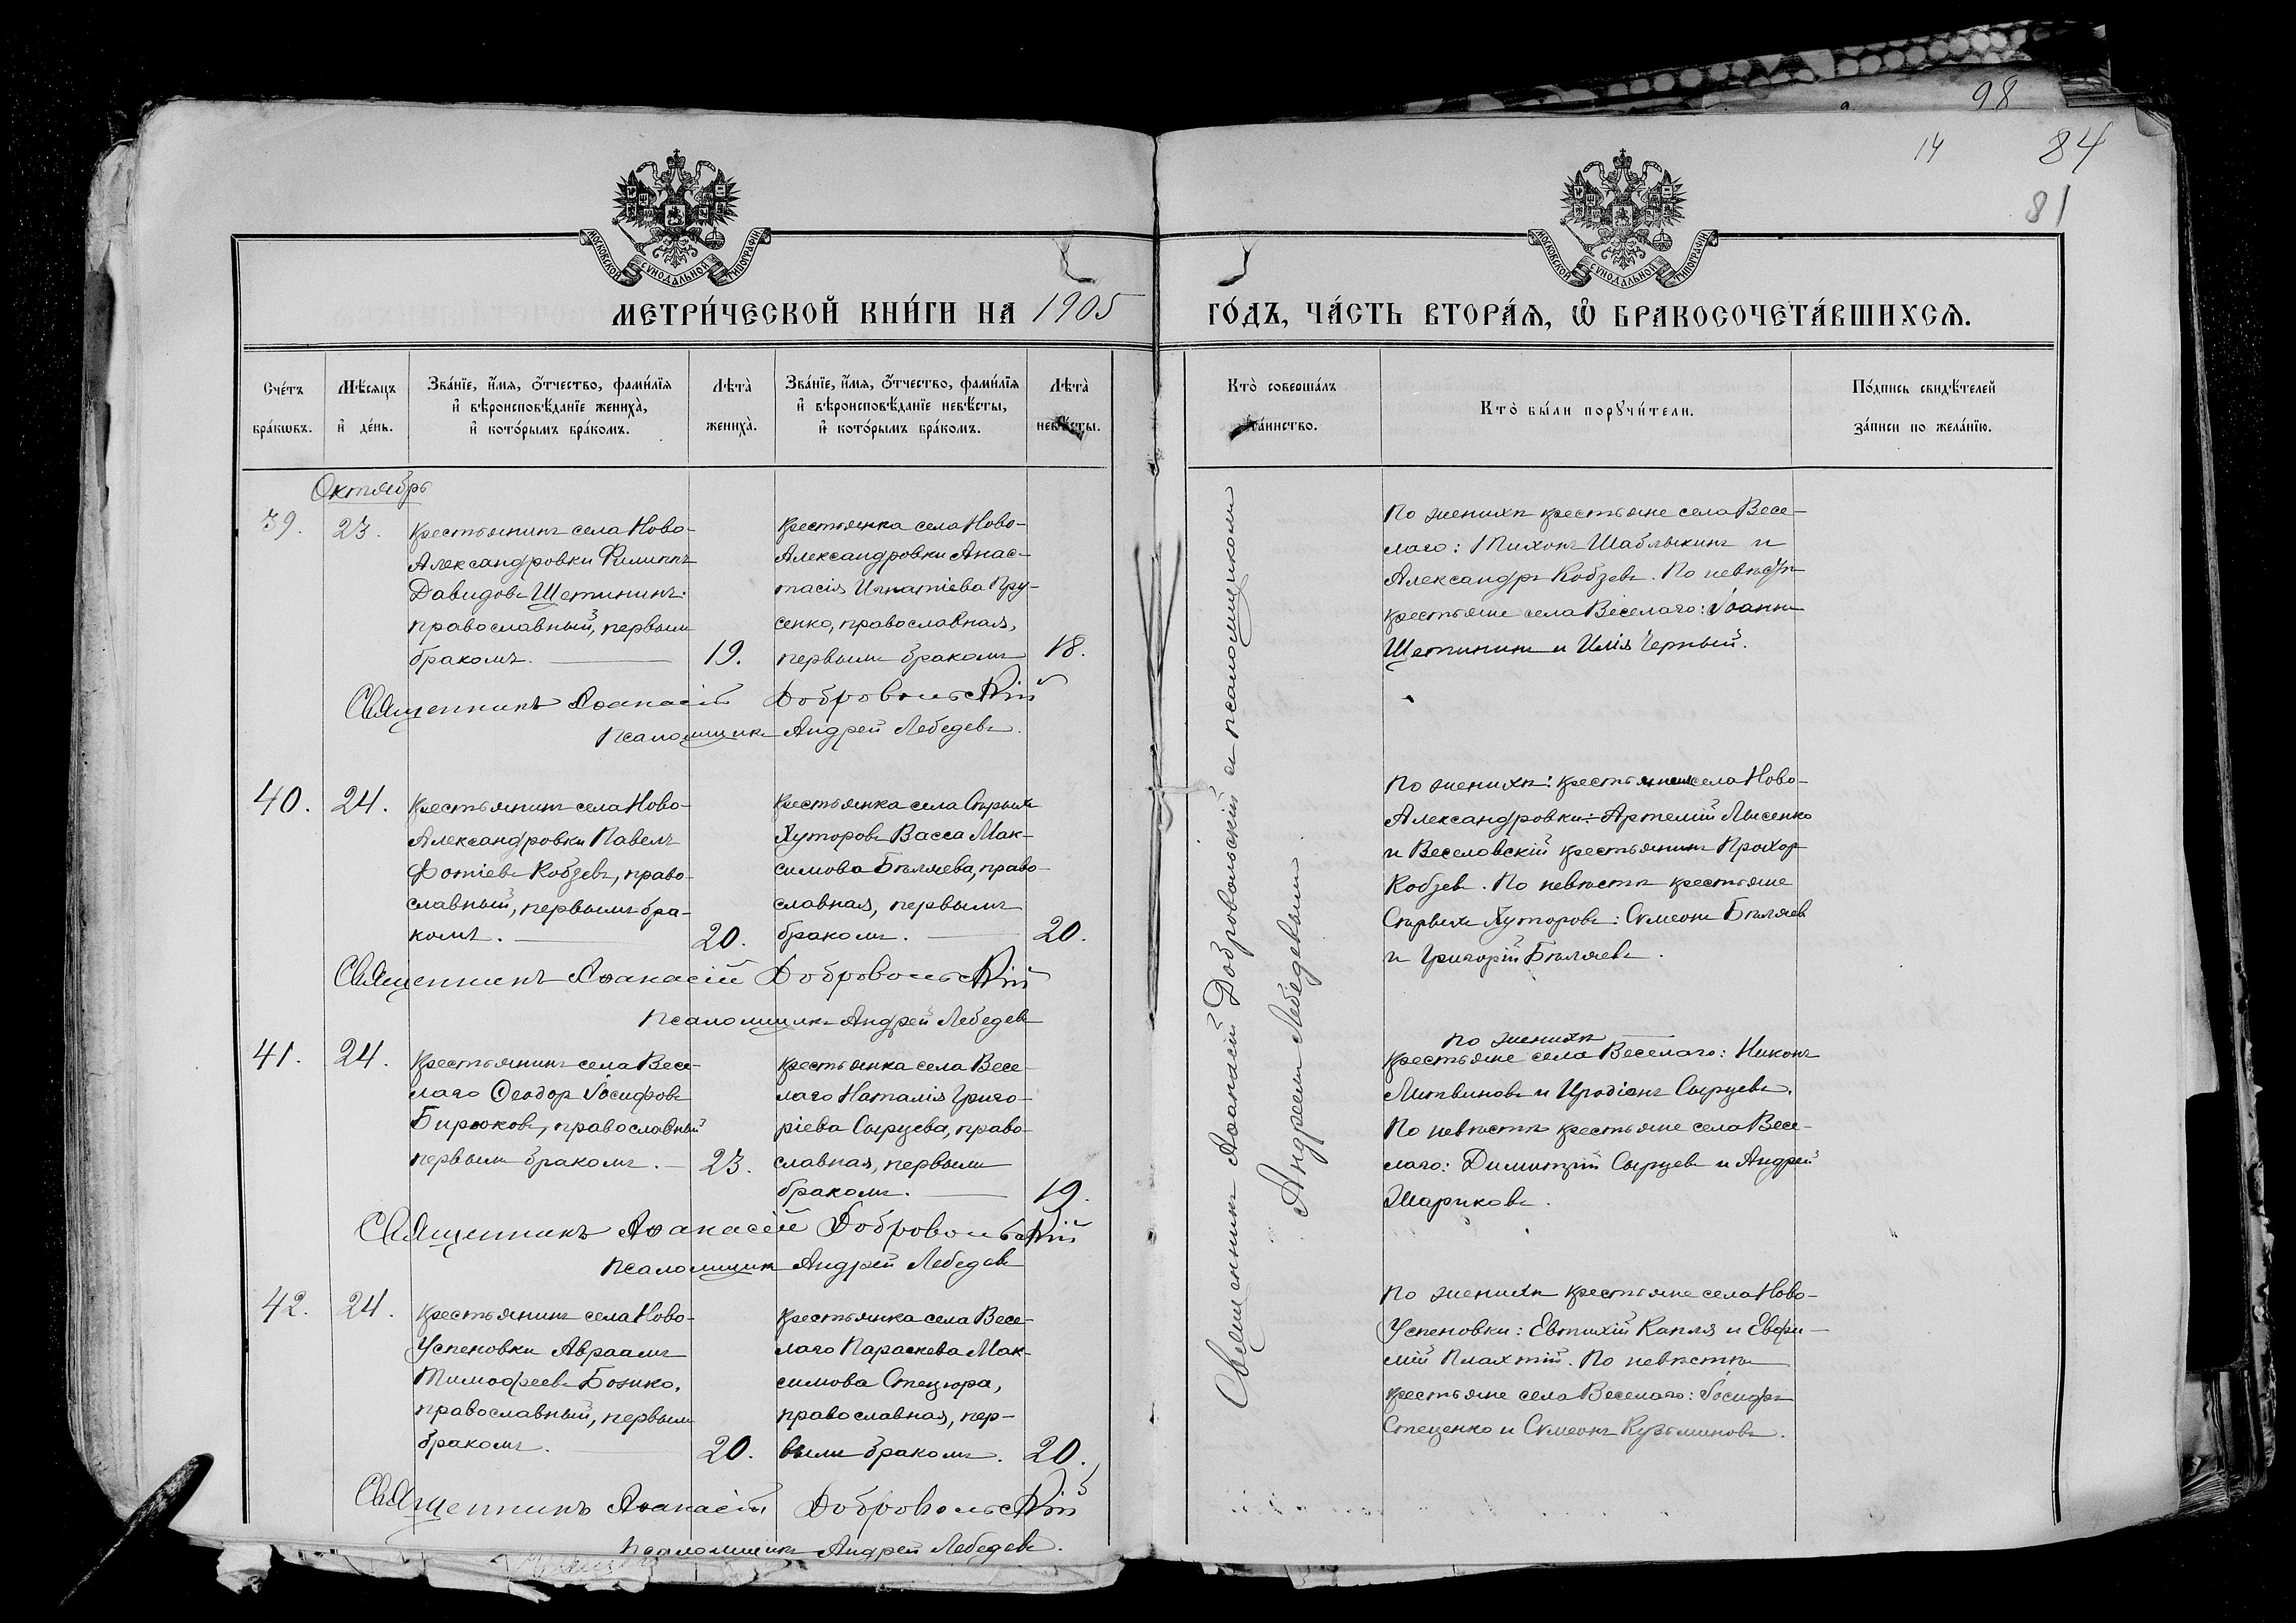 98
14
84
81
МОСКОВСКОЙ СѴНОДАЛЬНОЙ ТИПОГРАФІИ
МОСКОВСКОЙ СѴНОДАЛЬНОЙ ТИПОГРАФІИ
МЕТРИ́ЧЕСКОЙ КНИ́ГИ НА 1905
ГО́ДЪ, ЧА́СТЬ ВТОРА́Я, Ѽ БРАКОСОЧЕТА́ВШИХСЯ.
Сче́тъ
бра́кѡвъ.
Мѣ́сяцъ
и҆ де́нь.
Зва́нїе, и҆́мя, ѻ҆́тчество, фами́лїя
и҆ вѣроисповѣ́данїе жениха̀,
и҆ кото́рымъ бра́комъ.
Лѣта̀
жениха̀.
Зва́нїе, и҆́мя, ѻ҆́тчество, фами́лїя
и҆ вѣроисповѣ́данїе невѣ́сты,
и҆ кото́рымъ бра́комъ.
Лѣта̀
невѣ́сты.
Кто̀ соверша́лъ
та́инство.
Кто̀ бы́ли порꙋчи́тели.
По́дпись свидѣ́телей
за́писи по жела́нїю.
Октябрь
39.
23.
Крестьянинъ села Ново-
Александровки Филиппъ
Давидовъ Щетининъ.
православный, первымъ
бракомъ.
19.
Крестьянка села Ново-
Александровки Анас-
тасія Игнатіева Пру-
сенко, православная,
первымъ бракомъ
18.
По женихѣ крестьяне села Весе-
лаго: Тихонъ Шаблыкинъ и
Александръ Кобзевъ. По невѣстѣ
крестьяне села Веселаго: Іоаннъ
Щетининъ и Илія Черный.
Священникъ Аѳанасій Добровольскій
Псаломщикъ Андрей Лебедевъ.
40.
24.
Крестьянинъ села Ново-
Александровки Павелъ
Фотіевъ Кобзевъ, право-
славный, первымъ бра-
комъ.
20.
Крестьянка села Старыхъ
Хуторовъ Васса Мак-
симова Бѣляева, право-
славная, первымъ
бракомъ.
20.
По женихѣ: крестьянинъ села Ново-
Александровки: Артемій Лысенко
и Веселовскій крестьянинъ Прохоръ
Кобзевъ. По невѣстѣ крестьяне
Старыхъ Хуторовъ: Сѵмеонъ Бѣляевъ
и Григорій Бѣляевъ.
Священникъ Аѳанасій Добровольскій
Псаломщикъ Андрей Лебедевъ
41.
24.
Крестьянинъ села Весе-
лаго Ѳеодоръ Іосифовъ
Бирюковъ, православный
первымъ бракомъ.
23.
Крестьянка села Весе-
лаго Наталія Григо-
ріева Сырцева, право-
славная, первымъ
бракомъ.
19.
По женихѣ
крестьяне села Веселаго: Никонъ
Литвиновъ и Иродіонъ Сырцевъ.
По невѣстѣ крестьяне села Весе-
лаго: Димитрій Сырцевъ и Андрей
Шариковъ.
Священникъ Аѳанасій Добровольскій
Псаломщикъ Андрей Лебедевъ
42.
24.
Крестьянинъ села Ново-
Успеновки Авраамъ
Тимофеевъ Божко,
православный, первымъ
бракомъ.
20.
Крестьянка села Весе-
лаго Параскева Мак-
симова Стецюра,
православная, пер-
вымъ бракомъ.
20.
По женихѣ крестьяне села Ново-
Успеновки: Евтихій Капля и Евфи-
мій Плахтій. По невѣстѣ
крестьяне села Веселаго: Іосифъ
Стеценко и Сѵмеонъ Кузьминовъ.
Священникъ Аѳанасій Добровольскій
Псаломщикъ Андрей Лебедевъ.
Священникъ Аѳанасій Добровольскій и псаломщикомъ
Андреемъ Лебедевымъ.